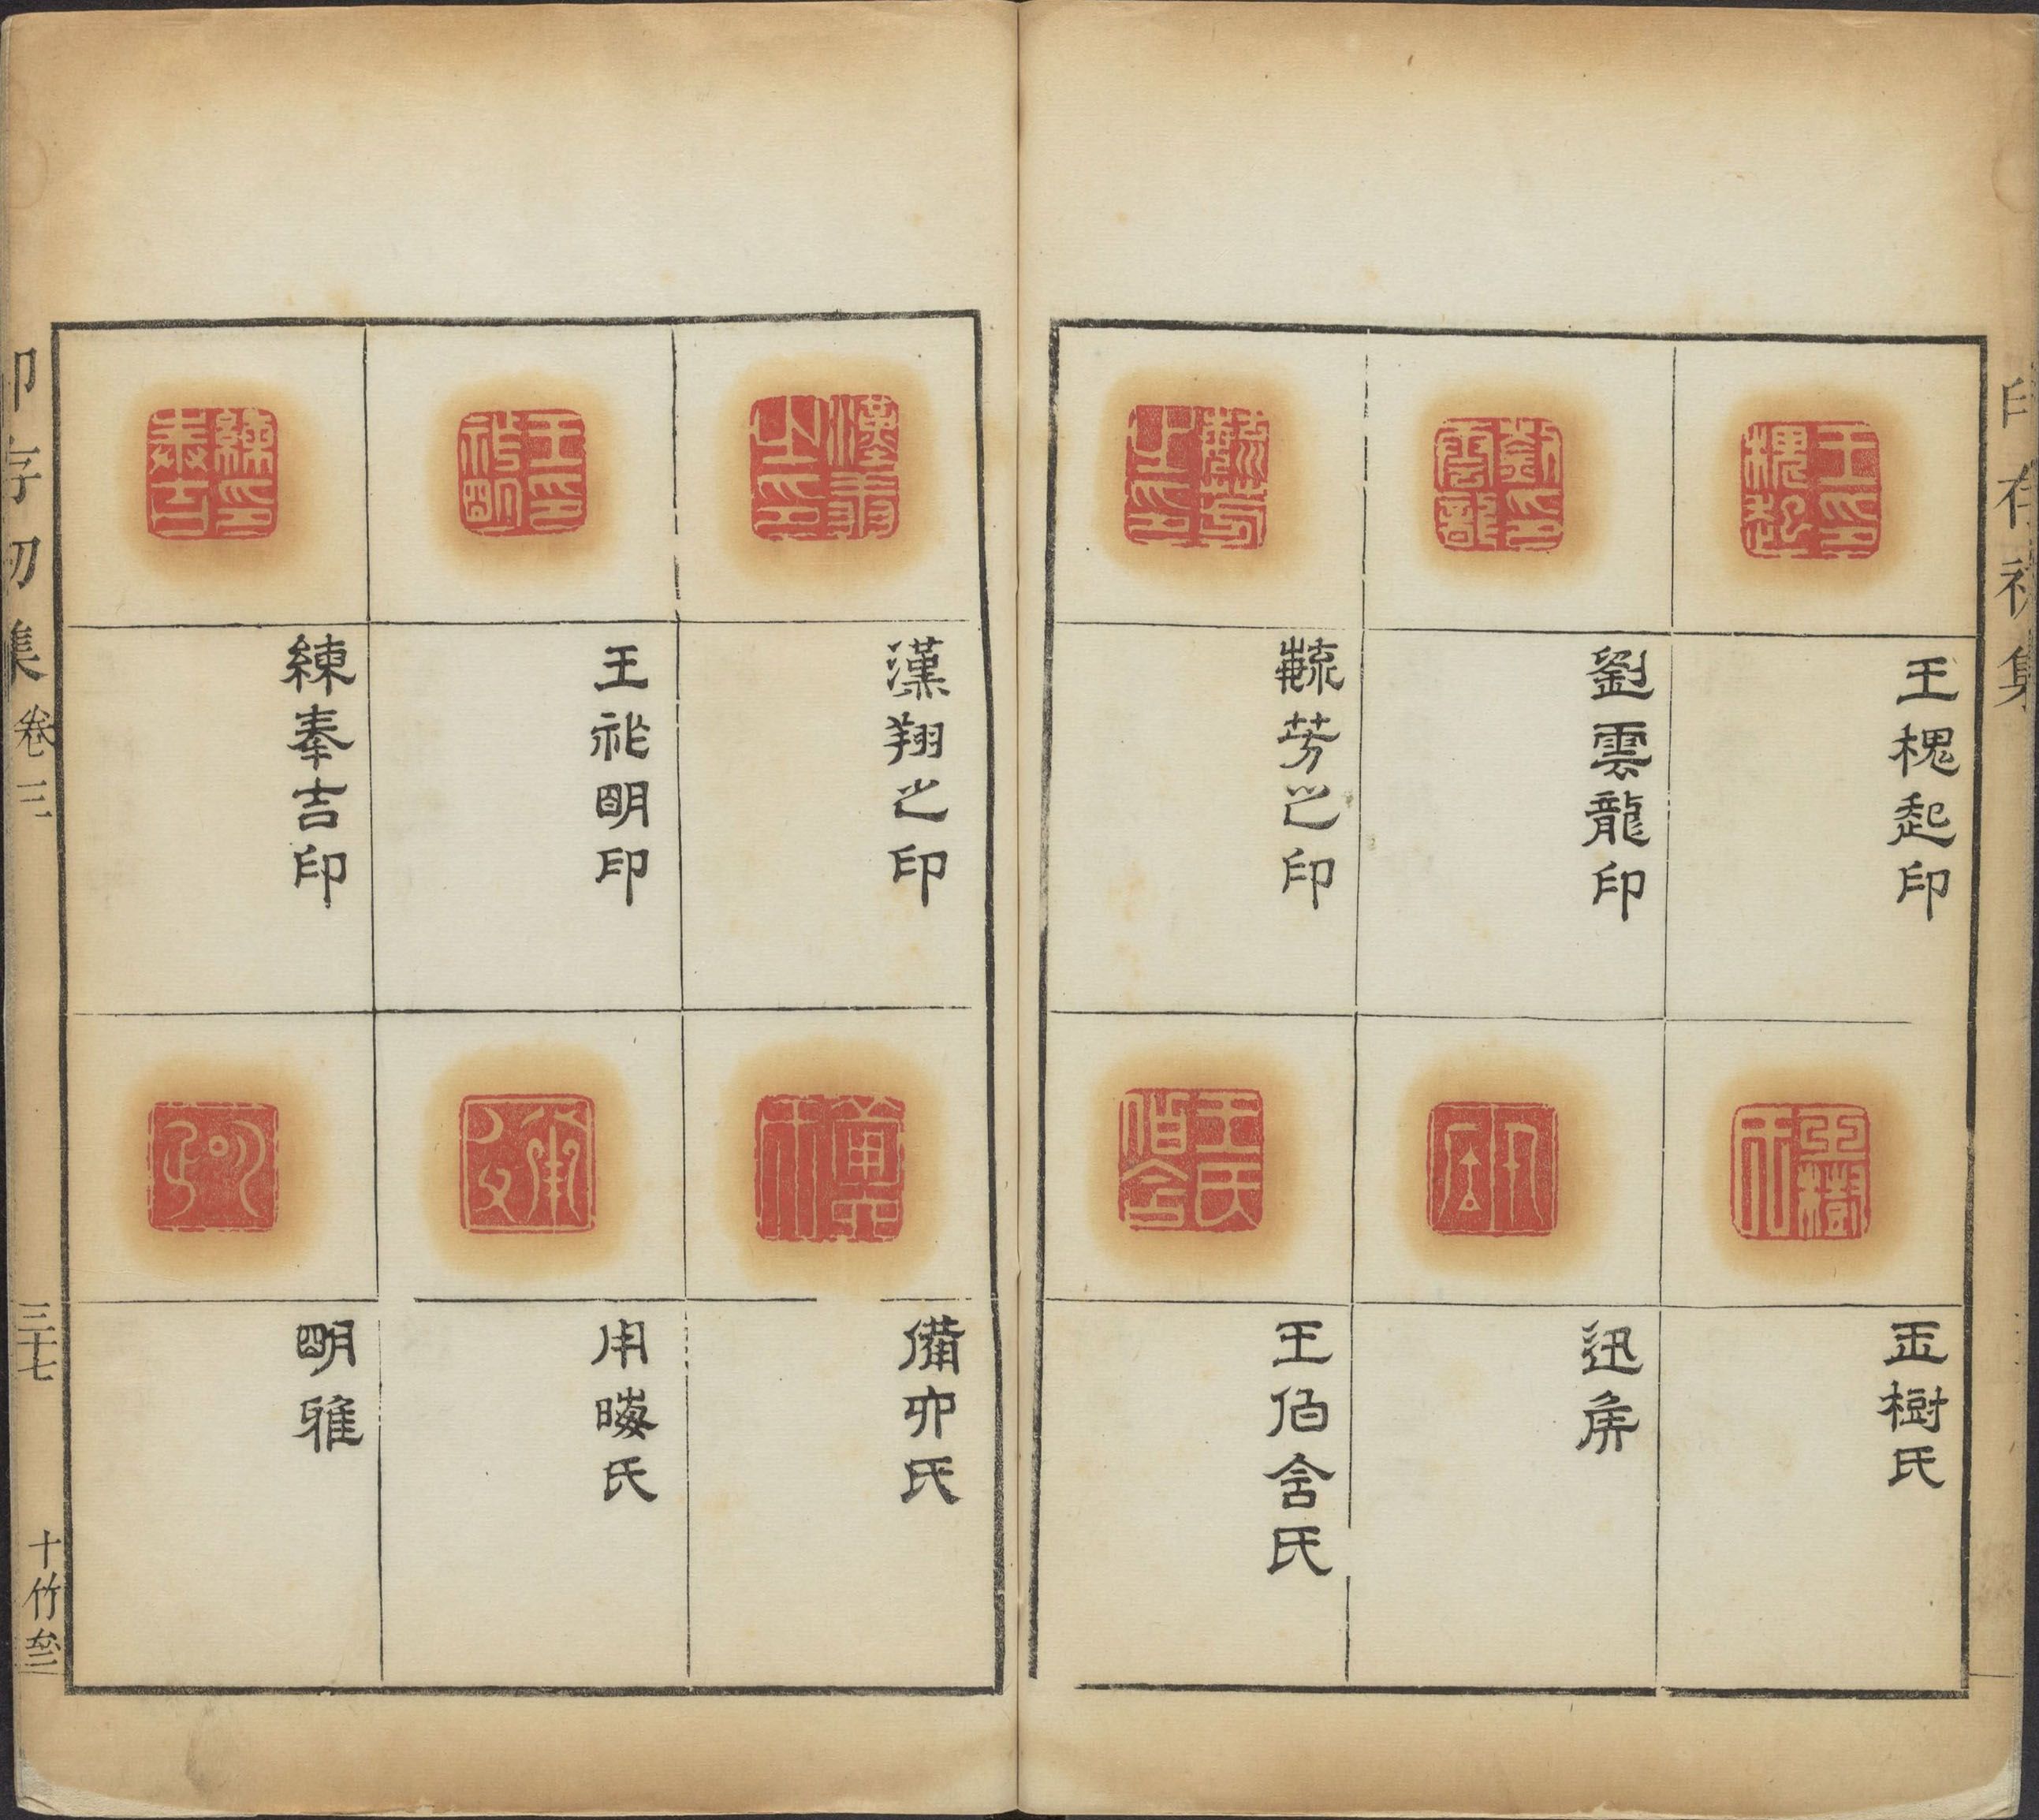 印存初集
王槐起印
劉雲龍印
蓺芳之印
玉樹氏
迅庠
王伯含氏
漢翔之印
王祚明印
練奉吉印
備卯氏
用晦氏
明雅
印存初集 卷三
三十七
十竹齋